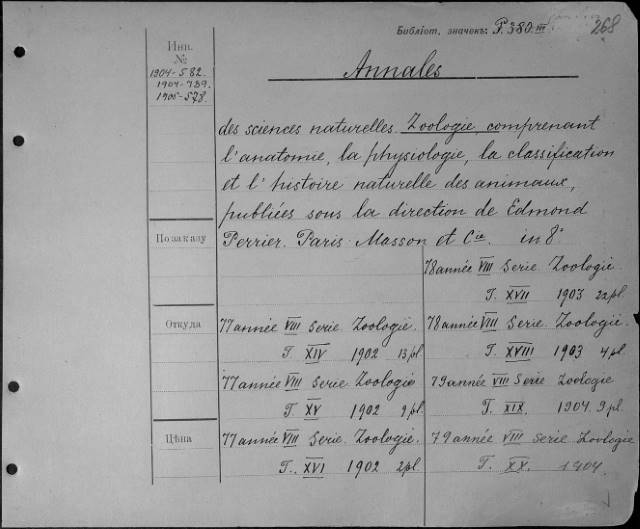 Библіот. значокъ: P. 380 III
268
Инв.
№
1904-582.
1904-739.
1905-578.
Annales
des sciences naturelles. Zoologie, comprenant
l'anatomie, la physiologie, la classification
et l'histoire naturelle des animaux,
publiées sous la direction de Edmond
По заказу
Perrier. Paris. Masson et Cie. in 8°
Откуда
77 année VIII Serie. Zoologie.
T. XIV 1902 13 pl.
77 année VIII Serie Zoologie
T. XV 1902 9 pl.
Цѣна
77 année VIII Serie. Zoologie.
T. XVI 1902 2 pl
78 année VIII Serie Zoologie.
T. XVII 1903 22 pl.
78 année VIII Serie. Zoologie.
T. XVIII 1903 4 pl.
79 année VIII Serie Zoologie
T. XIX. 1904. 9 pl.
79 année VIII Serie Zoologie
T. XX. 1904.